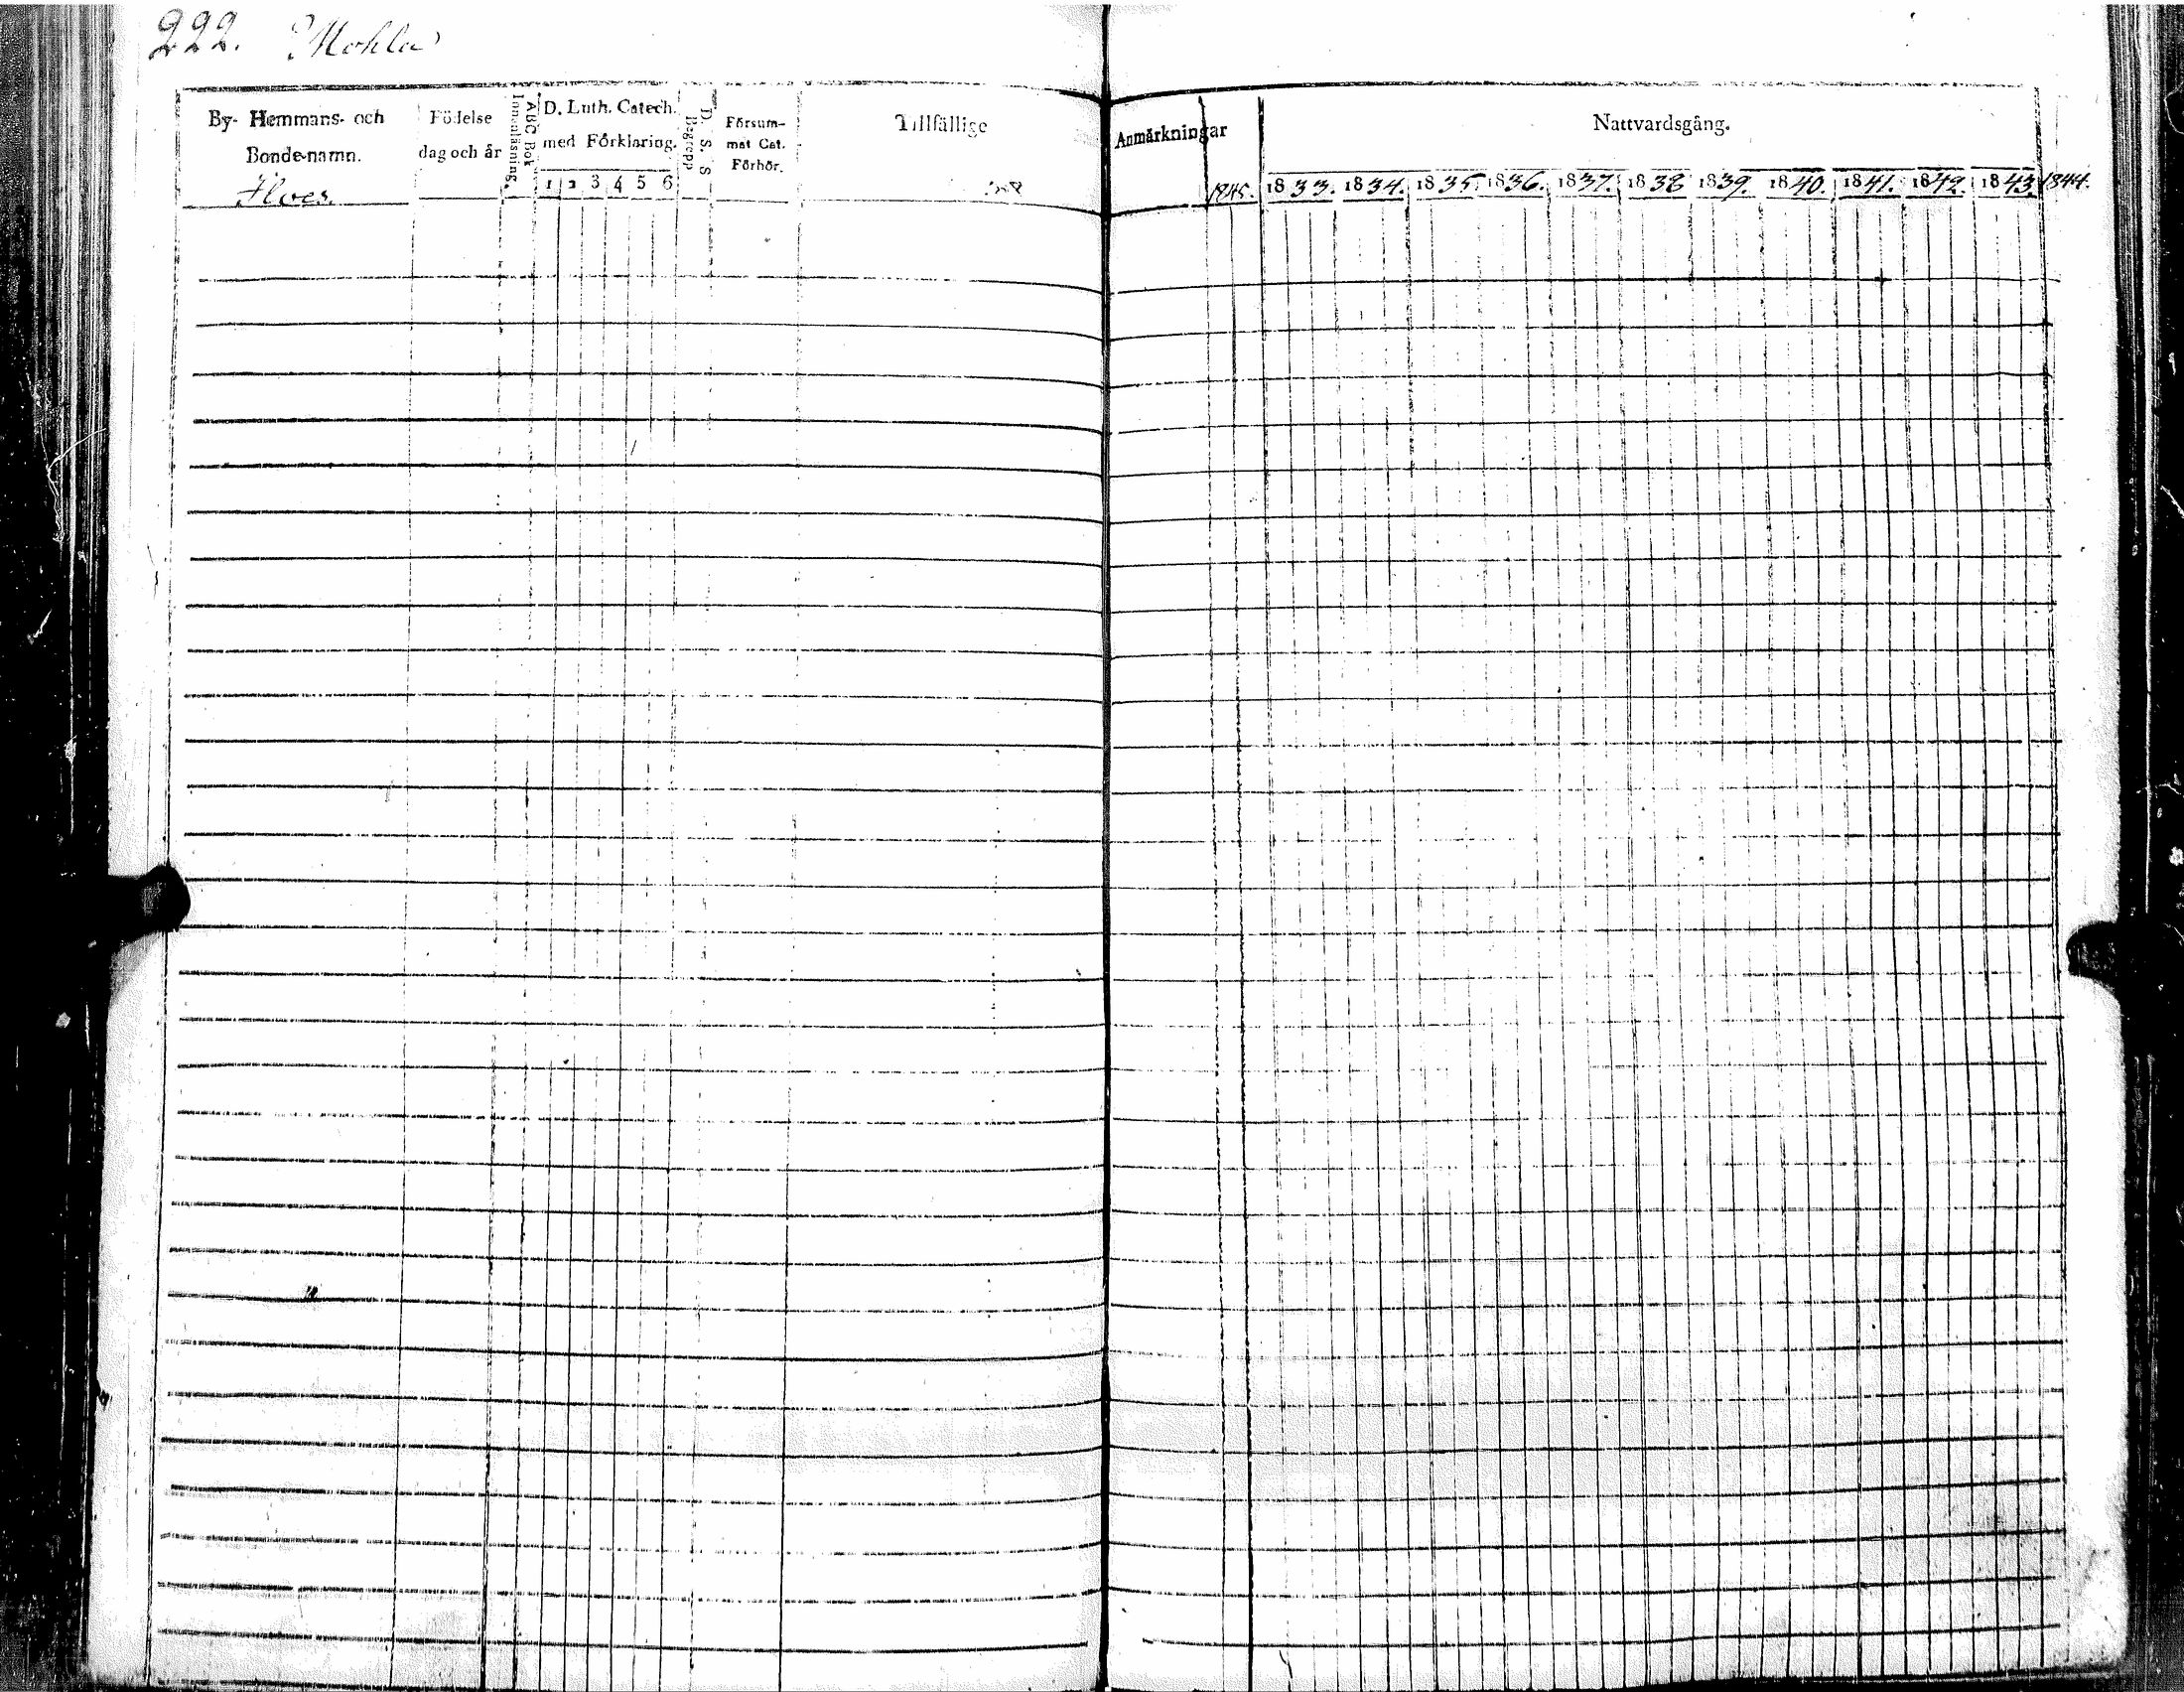 222. Mohla
By- Hemmans- och
Bonde-namn.
Ilves.
Födelse
dag och år
ABC Bok
Innanläsning.
D. Luth. Catech.
med Förklaring.
1 2 3 4 5 6
D. S. S
Begrepp
Försum-
mat Cat.
Förhör.
Tillfällige
Anmärkningar
1845.
Nattvardsgång.
1833. 1834. 1835. 1836. 1837. 1838 1839. 1840. 1841. 1842. 1843. 1844.